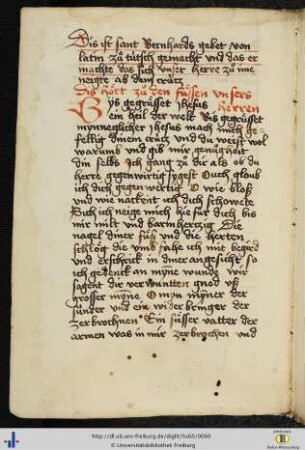 Dis ist sant Bernhards gebet von
latin zů tútsch gemacht und das er
machte das sich unser herre zů ime
neigte ab dem crútz
Dis hört zů den fůssen unsers
Bys gegrússet Jhesus herren
ein heil der welt Bis gegrússet
mynneglicher jhesus mach mich ge
fellig dinem crútz und du weist wol
warumb und gib mir genůgsami
din selbs Ich gang zů dir als ob du
herre gegenwirtig sygest Ouch gloub
ich dich gegenwertig O wie bloß
und wie nackent ich dich schowete
Sich ich neige mich hie fúr dich bis
mir milt und barmhertzig Die
nagel diner fůß und die herten
schleg die umb fahe ich mit begird
und erschrick in diner angesicht so
ich gedenck an myne wunde Wir
sagent dir verwunten gnod uß
grosser myne O myn mynner der
súnder und ein wider bringer der
zerbrochnen Ein sússer vatter der
armen was in mir zerbrochen und
http://dl.ub.uni-freiburg.de/diglit/hs60/0060
© Universitätsbibliothek Freiburg